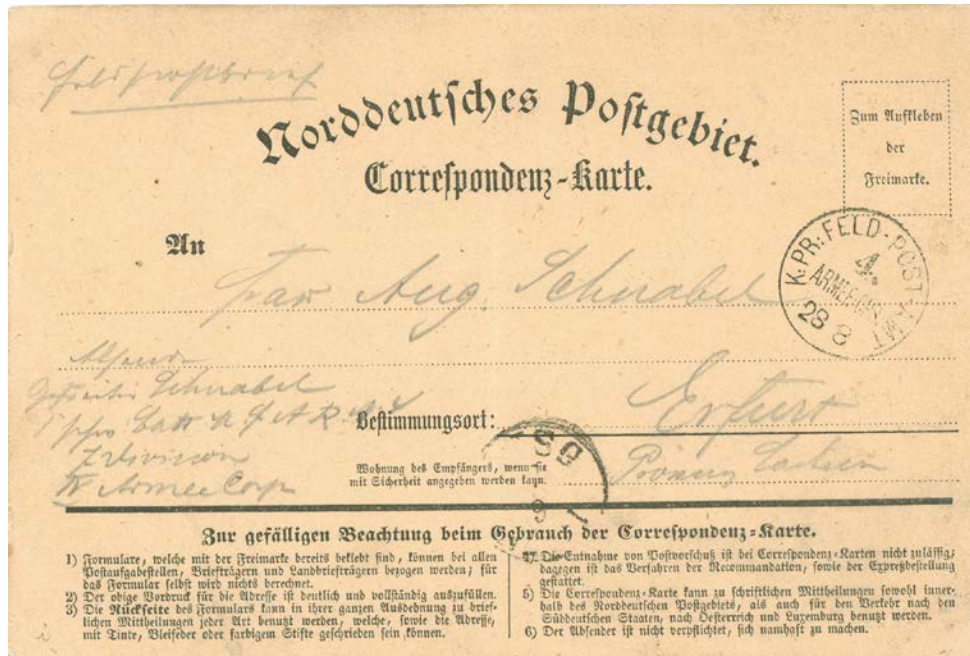 Feldpostbrief
Norddeutſches Poſtgebiet.
Correſpondenz-Karte.
Zum Aufkleben
der
Freimarke.
K. PR. FELD-POST-AMT
4.
ARMEE-CORPS
28 8
An
Frau Aug. Schnabel
Schnabel
Batt
Division
IV Armee Corps
Beſtimmungsort: Erfurt
Wohnung des Empfängers, wenn ſie
mit Sicherheit angegeben werden kann.
Provinz Sachsen
Zur gefälligen Beachtung beim Gebrauch der Correſpondenz-Karte.
1) Formulare, welche mit der Freimarke bereits beklebt ſind, können bei allen
Poſtaufgabeſtellen, Briefträgern und Landbriefträgern bezogen werden; für
das Formular ſelbſt wird nichts berechnet.
2) Der obige Vordruck für die Adreſſe iſt deutlich und vollſtändig auszufüllen.
3) Die Rückſeite des Formulars kann in ihrer ganzen Ausdehnung zu brief-
lichen Mittheilungen jeder Art benutzt werden, welche, ſowie die Adreſſe,
mit Tinte, Bleifeder oder farbigem Stifte geſchrieben ſein können.
4) Die Entnahme von Poſtvorſchuß iſt bei Correſpondenz-Karten nicht zuläſſig;
dagegen iſt das Verfahren der Recommandation, ſowie der Expreßbeſtellung
geſtattet.
5) Die Correſpondenz-Karte kann zu ſchriftlichen Mittheilungen ſowohl inner-
halb des Norddeutſchen Poſtgebiets, als auch für den Verkehr nach den
Süddeutſchen Staaten, nach Oeſterreich und Luxemburg benutzt werden.
6) Der Abſender iſt nicht verpflichtet, ſich namhaft zu machen.